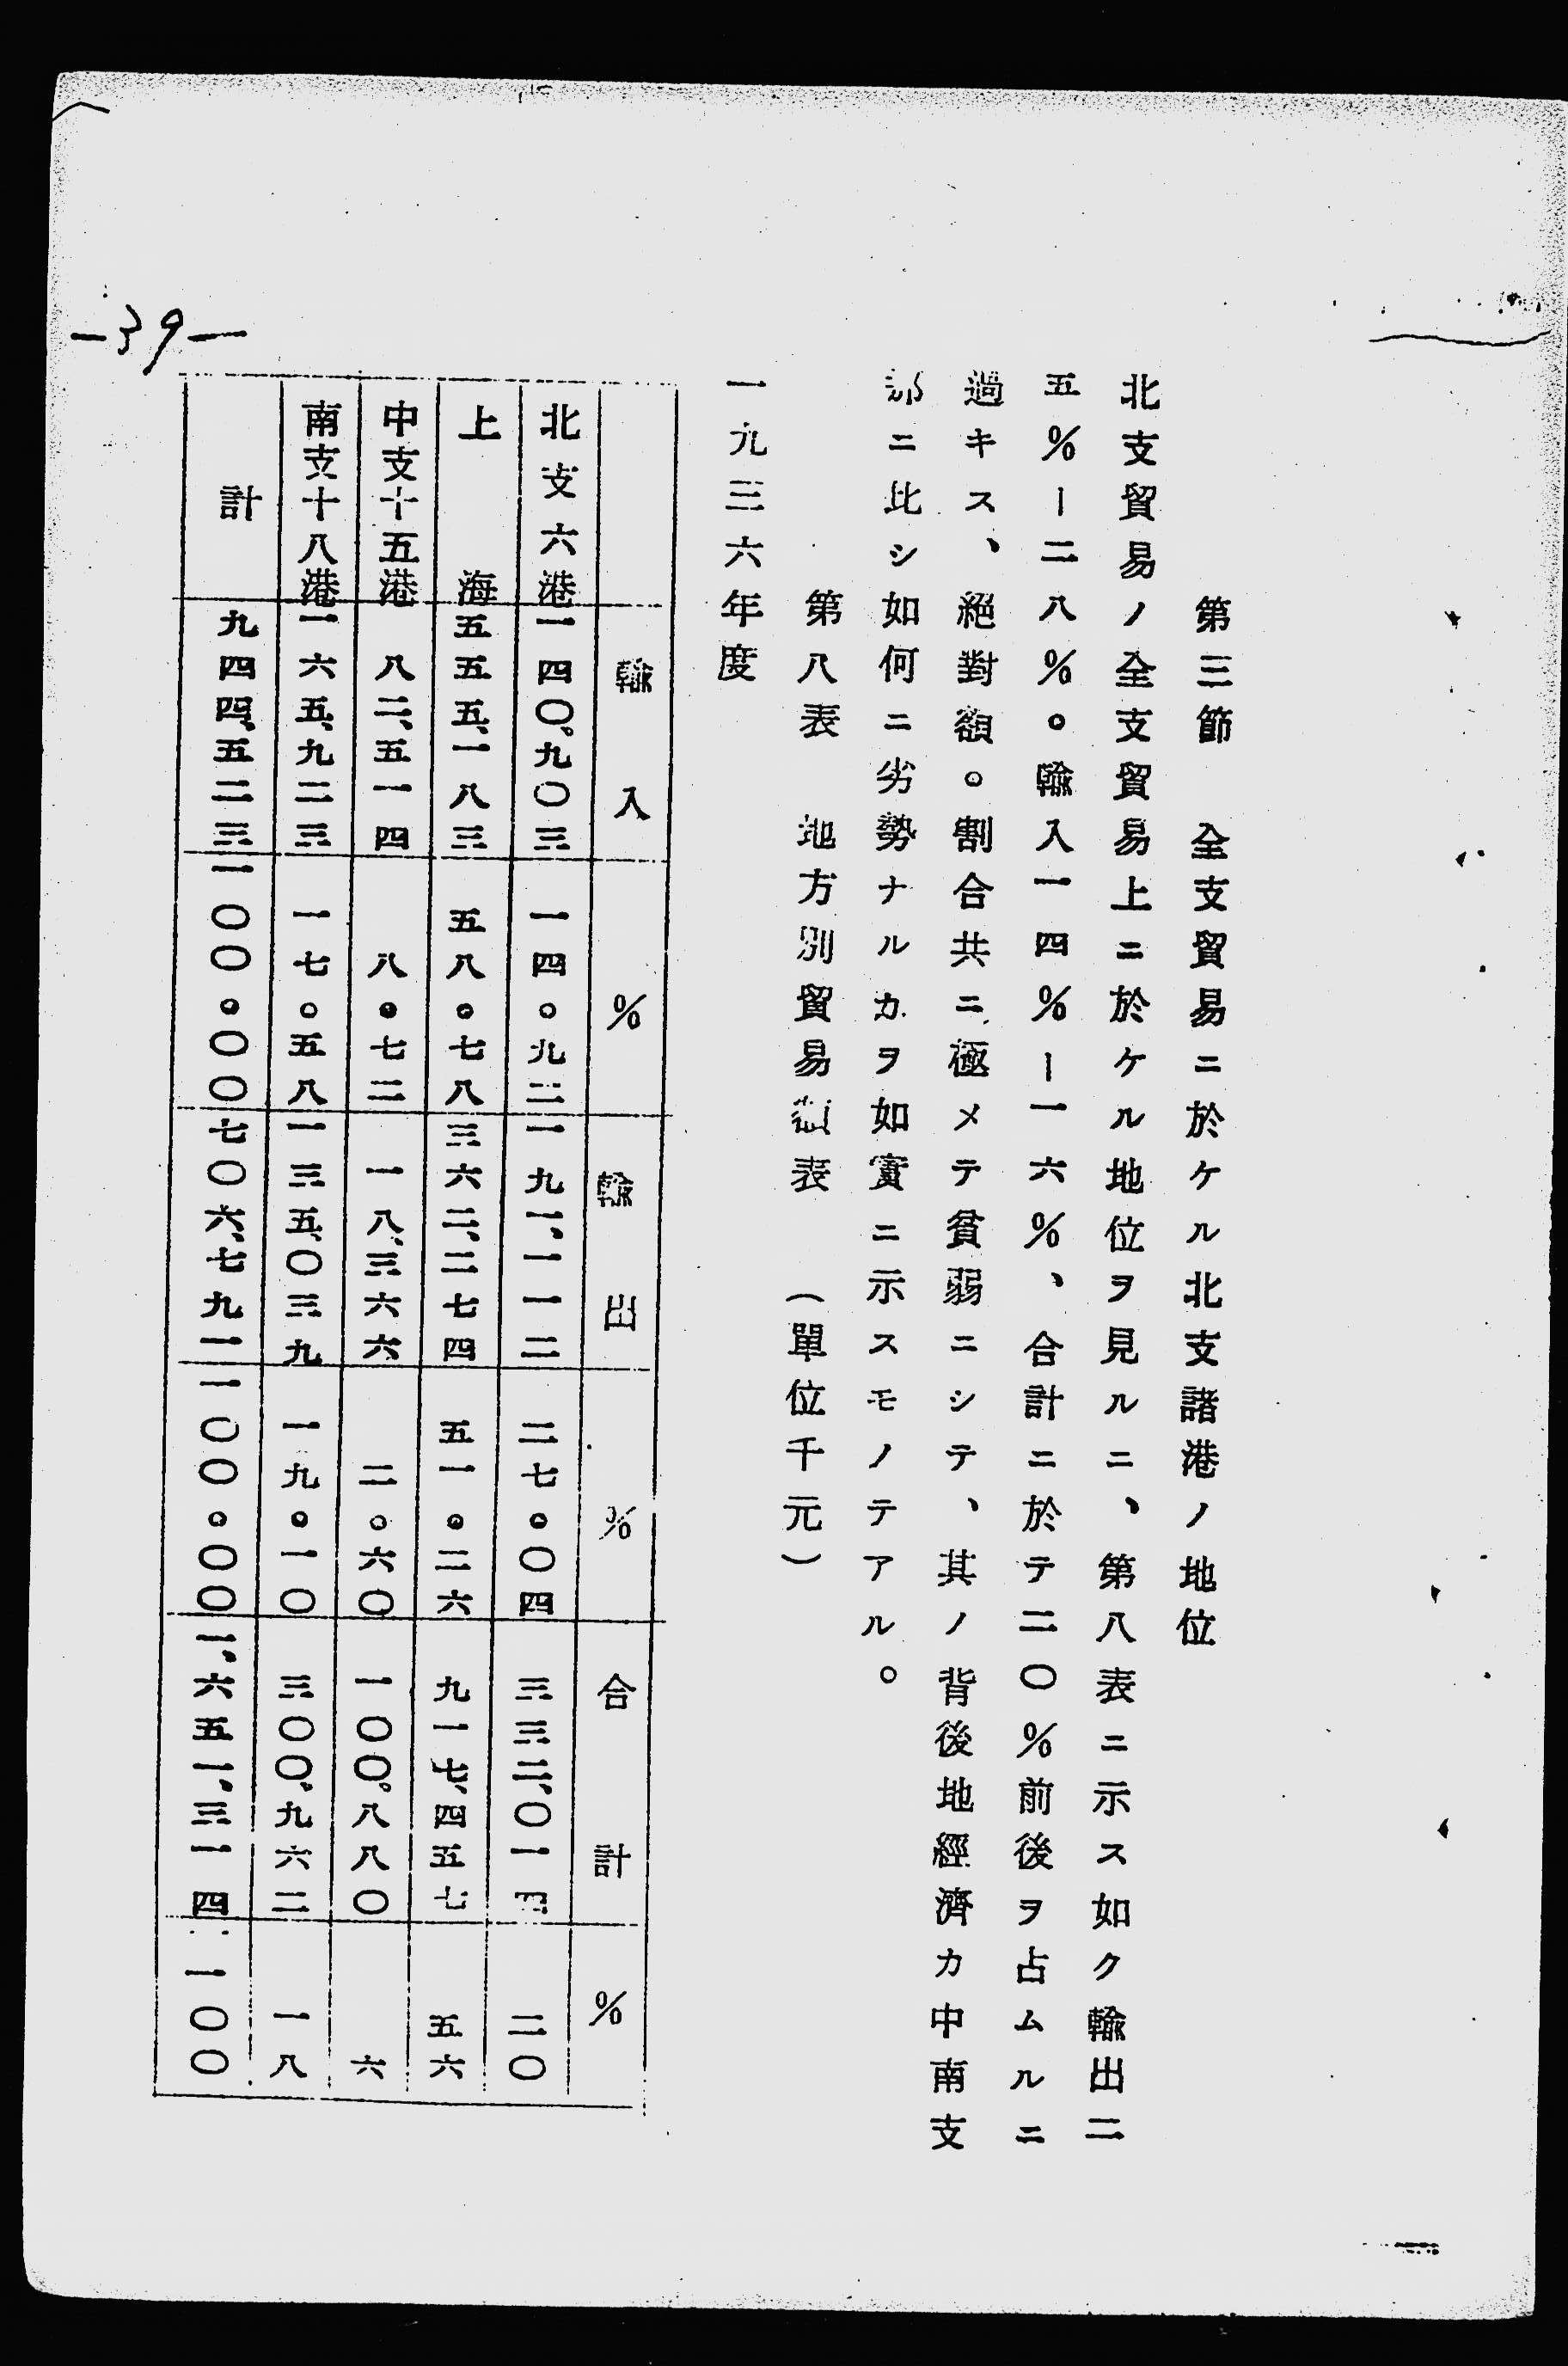 第三節 全支貿易ニ於ケル北支諸港ノ地位
北支貿易ノ全支貿易上ニ於ケル地位ヲ見ルニ、第八表ニ示ス如ク輸出二
五%ー二八%。輸入一四%ー一六%、合計ニ於テ二〇%前後ヲ占ムルニ
過キス、絕對額。割合共ニ極メテ貧弱ニシテ、其ノ背後地經濟カ中南支
ニ比シ如何ニ劣勢ナルカヲ如實ニ示スモノテアル。
第八表 地方別貿易表 (單位千元)
一九三六年度
輸入 % 輸出 % 合計 %
北支六港 一四〇、九〇三 一四。九二 一九一、一一二 二七。〇四 三三二、〇一 二〇
上海 五五五、一八三 五八。七八 三六二、二七四 五一。二六 九一七、四五七 五六
中支十五港 八二、五一四 八。七二 一八、三六六 二。六〇 一〇〇、八八〇 六
南支十八港 一六五、九二三 一七。五八 一三五、〇三九 一九。一〇 三〇〇、九六二 一八
計 九四四、五二三 一〇〇。〇〇 七〇六、七九一 一〇〇。〇〇 一、六五一、三一四 一〇〇
—39—